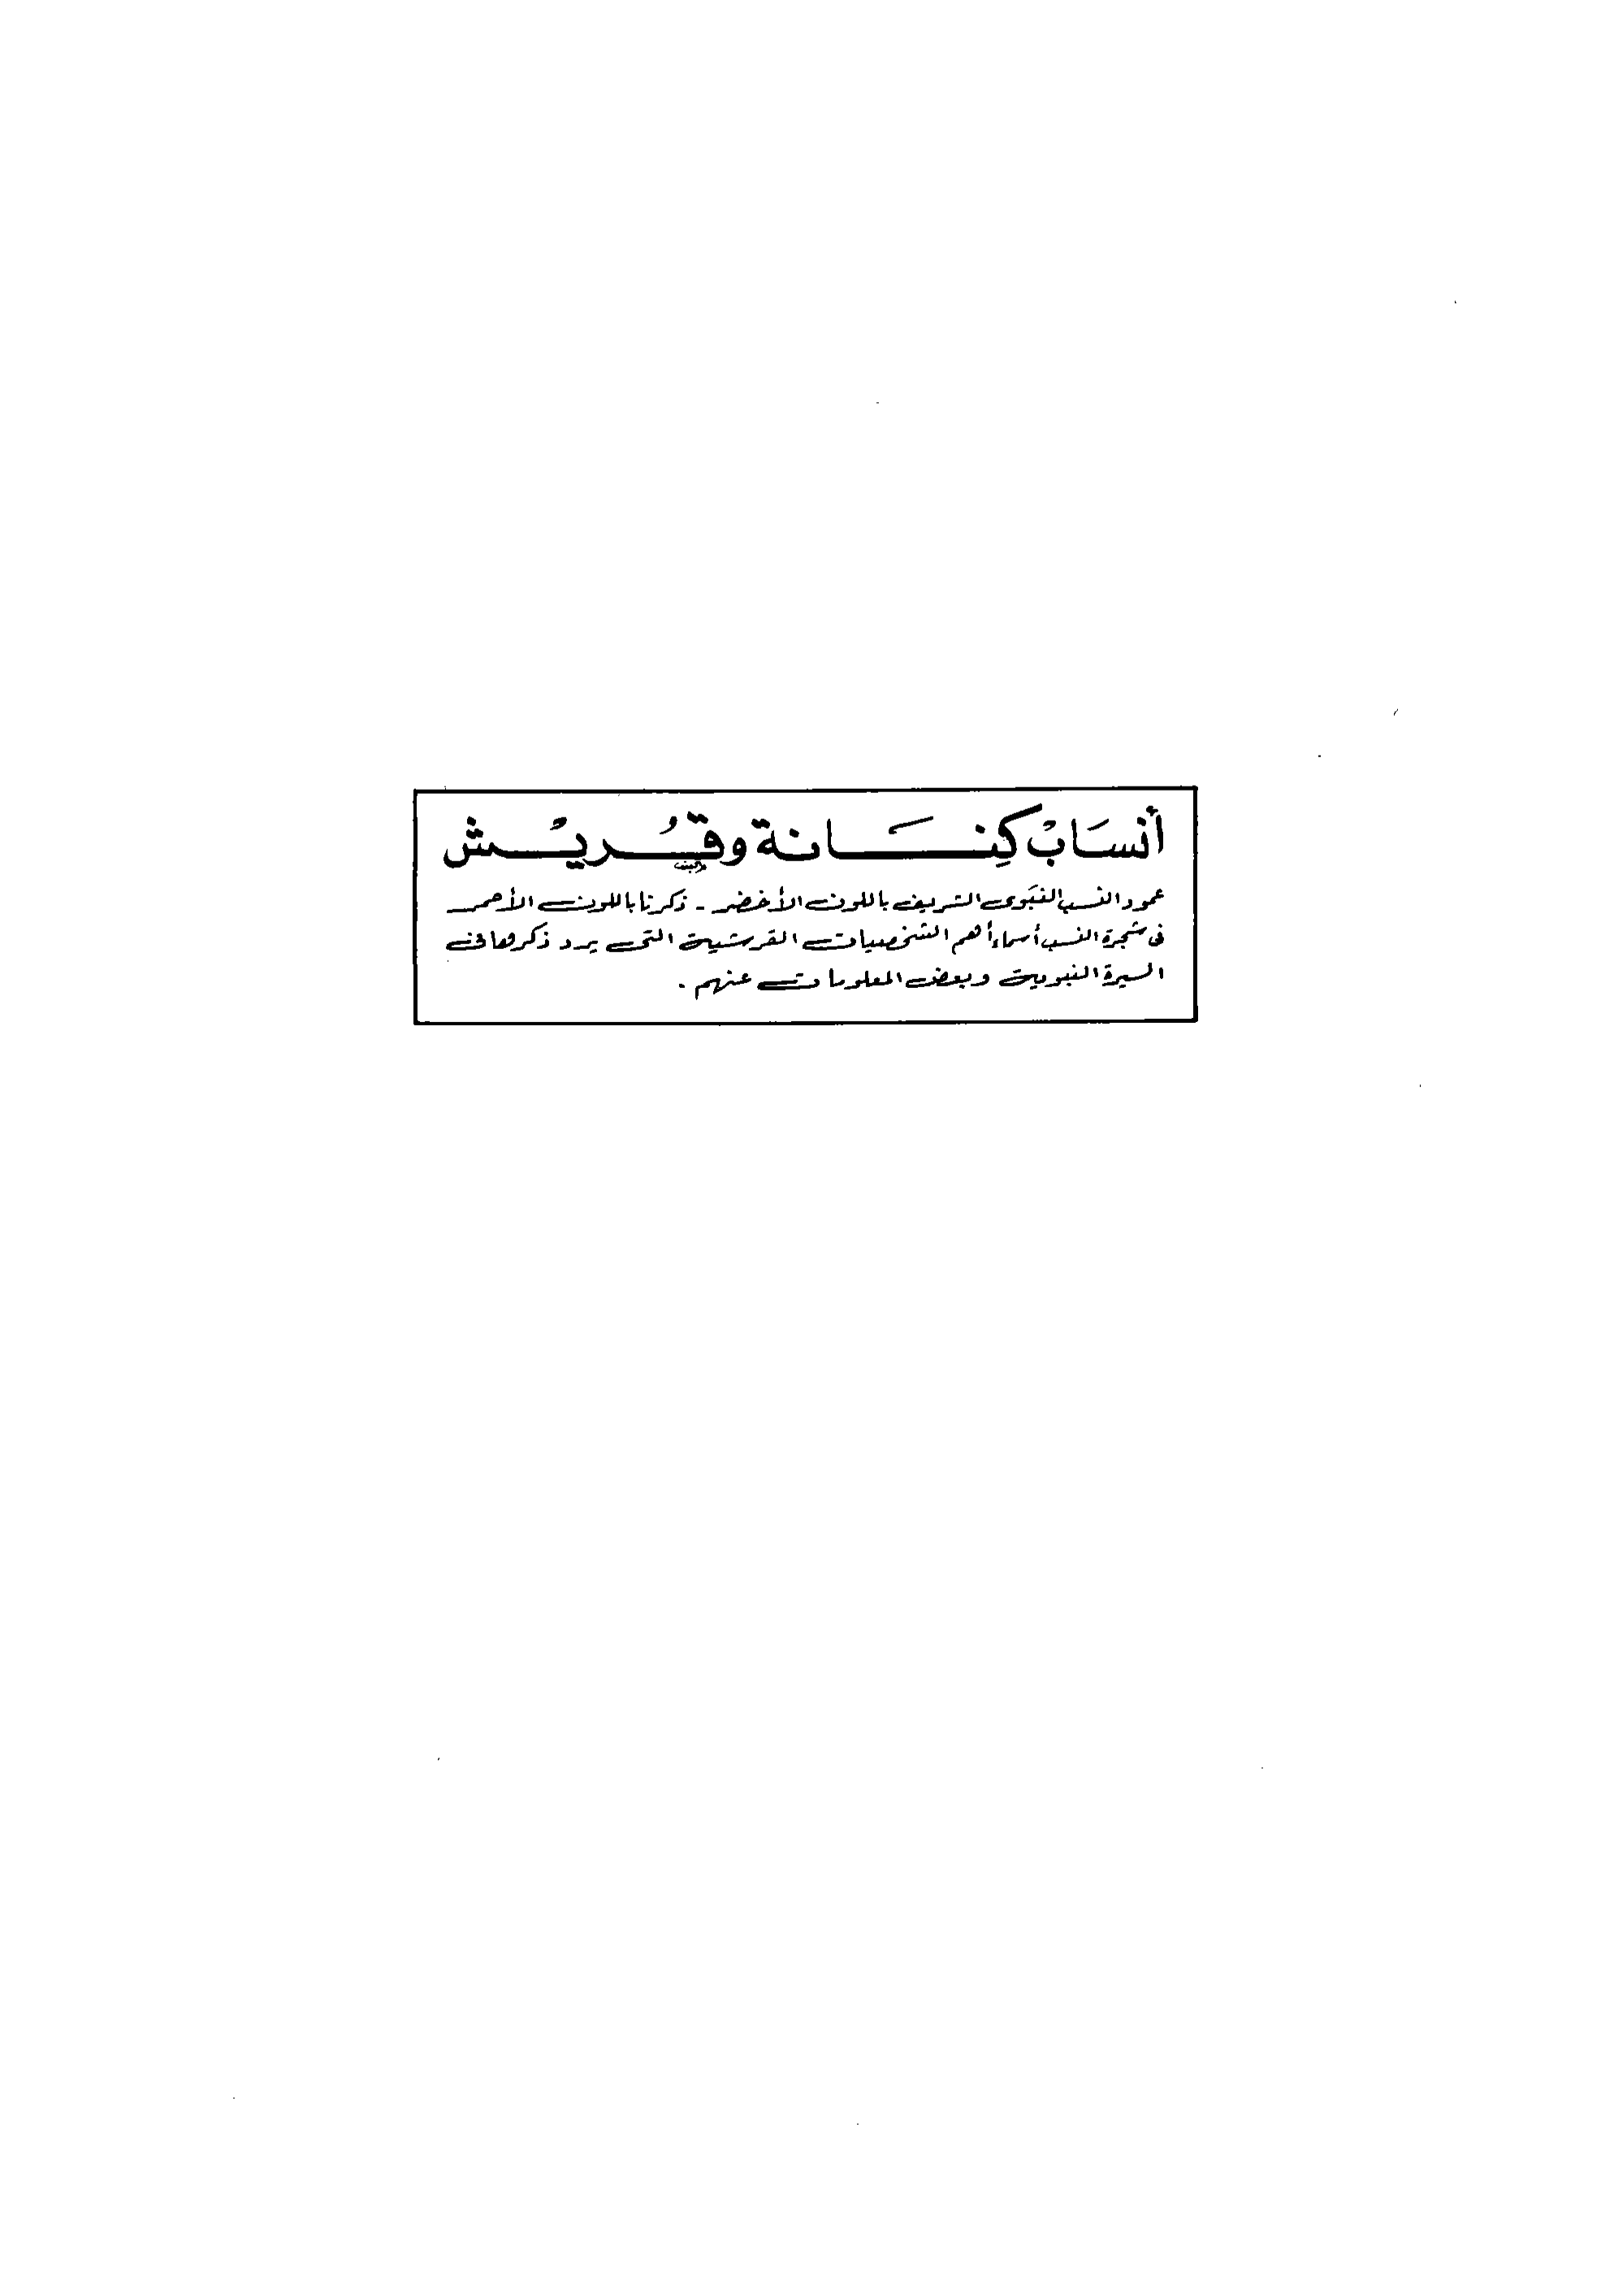 أنسَابْ كِنَانة وقُريْش
عمود النسب النبَوي الشريف باللون الأخضر - ذكرنا باللون الأحمر
في شجرة النسب أسماء أهم الشخصيات القرشية التي يرد ذكرها في
السيرة النبوية وبعض المعلومات عنهم .